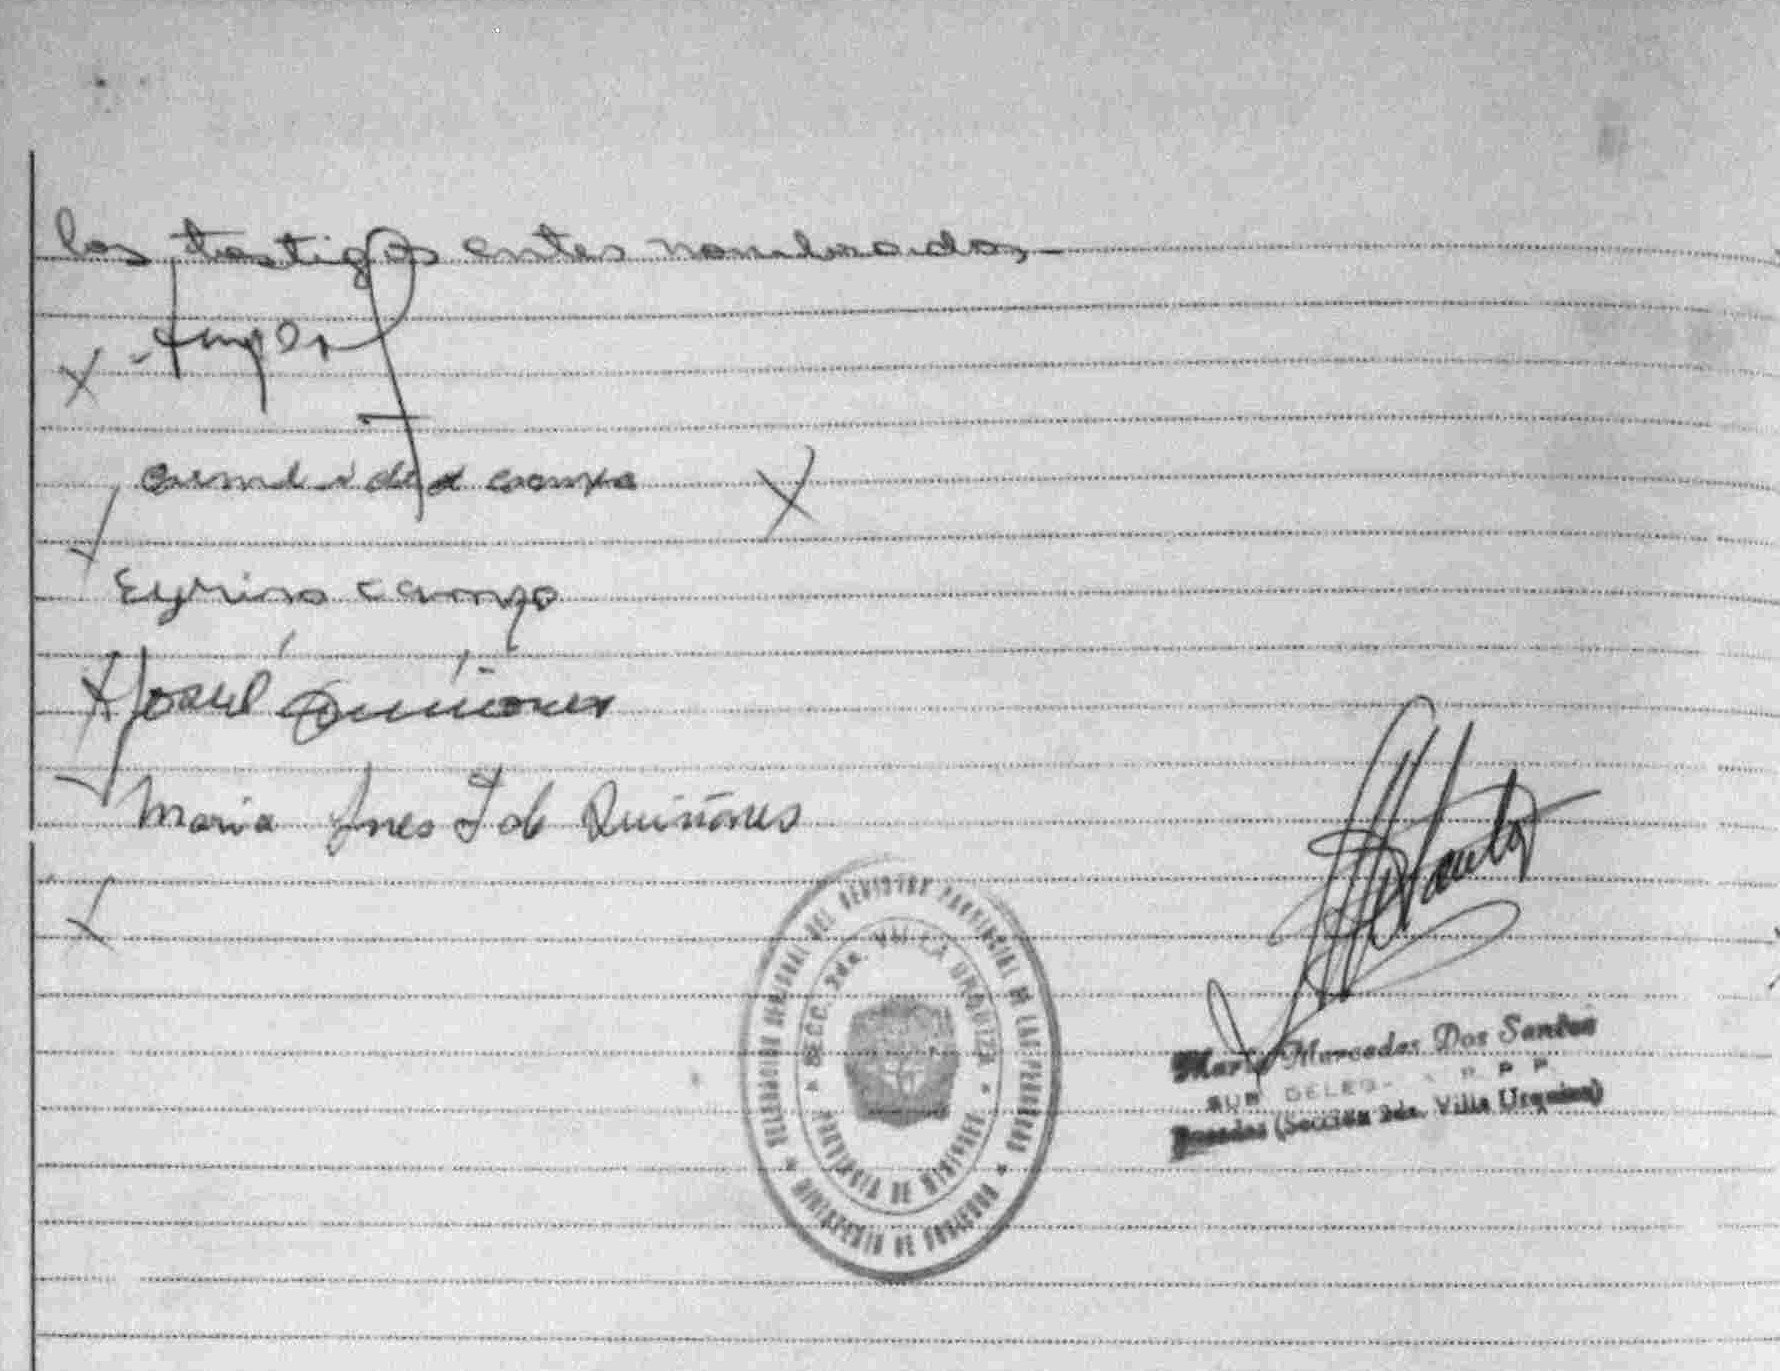 los testigos antes nombrados,—
campo
Eyrino campo
José Quiñones
Maria Ines I de Quiñones
DIRECCION GENERAL DEL REGISTRO PROVINCIAL DE LAS PERSONAS
★ MINISTERIO DE GOBIERNO ★
SECC. 2da. VILLA URQUIZA
★ PROVINCIA DE MISIONES ★
Maria Mercedes Dos Santos
SUB DELEG. R. P. P.
Posadas (Sección 2da. Villa Urquiza)